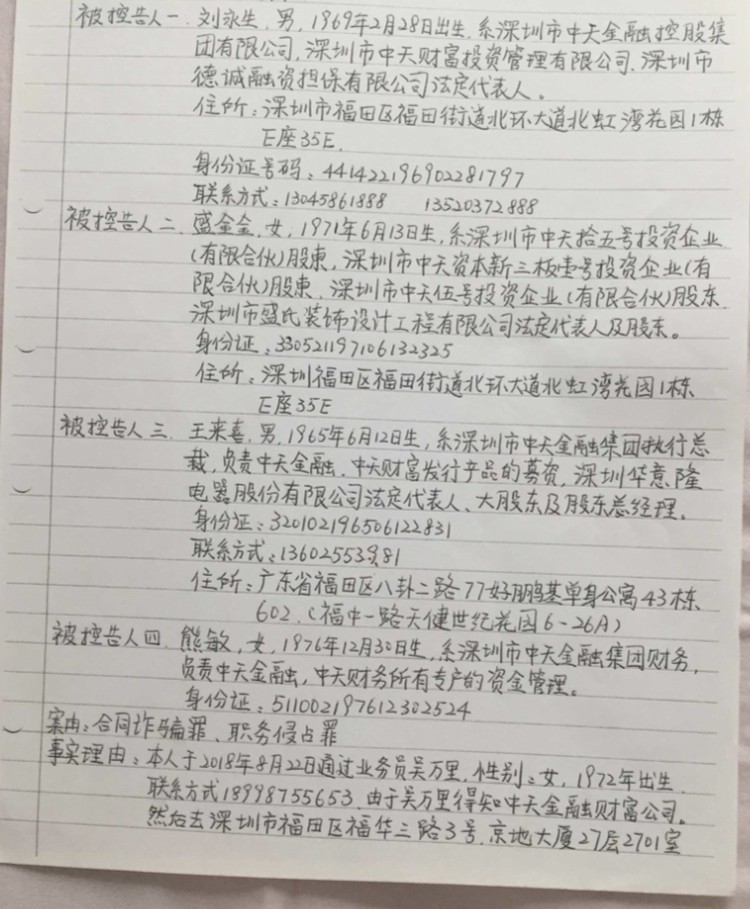 被控告人一. 刘永生, 男, 1969年2月28日出生, 系深圳市中天金融控股集
团有限公司, 深圳市中天财富投资管理有限公司, 深圳市
德诚融资担保有限公司法定代表人。
住所: 深圳市福田区福田街道北环大道北虹湾花园1栋
E座35E.
身份证号码: 441422196902281797
联系方式: 13045861888 13520372888
被控告人二. 盛金金, 女, 1971年6月13日生, 系深圳市中天拾五号投资企业
(有限合伙)股東, 深圳市中天资本新三板壹号投资企业(有
限合伙)股東. 深圳市中天伍号投资企业(有限合伙)股东.
深圳市盛氏装饰设计工程有限公司法定代表人及股东。
身份证: 330521197106132325
住所: 深圳福田区福田街道北环大道北虹湾花园1栋
E座35E
被控告人三. 王来喜, 男, 1965年6月12日生, 系深圳市中天金融集团执行总
裁, 负责中天金融. 中天财富发行产品的募资, 深圳华意隆
电器股份有限公司法定代表人、大股东及股东总经理。
身份证: 320102196506122831
联系方式: 13602553981
住所: 广东省福田区八卦二路77好鹏基单身公寓43栋
602. (福中一路天健世纪花园6-26A)
被控告人四. 熊敏, 女, 1976年12月30日生, 系深圳市中天金融集团财务,
负责中天金融, 中天财务所有专户的资金管理。
身份证: 511002197612302524
案由: 合同诈骗罪、职务侵占罪
事实理由: 本人于2018年8月22日通过业务员吴万里, 性别: 女, 1972年出生.
联系方式18998755653. 由于吴万里得知中天金融财富公司.
然后去深圳市福田区福华三路3号, 京地大厦27层2701室